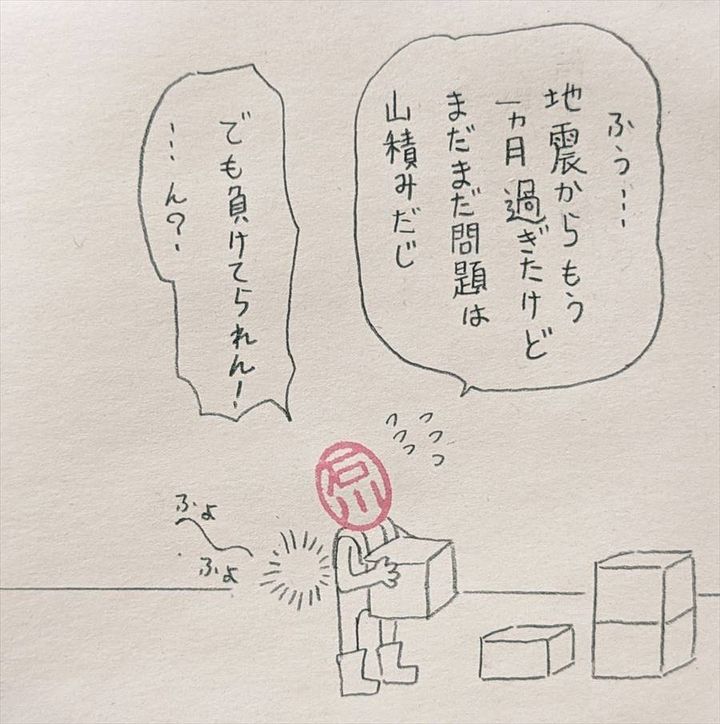 ふぅ…
地震からもう
一ヵ月過ぎたけど
まだまだ問題は
山積みだじ
でも負けてられん！
…ん？
原
ふよ
ふよ